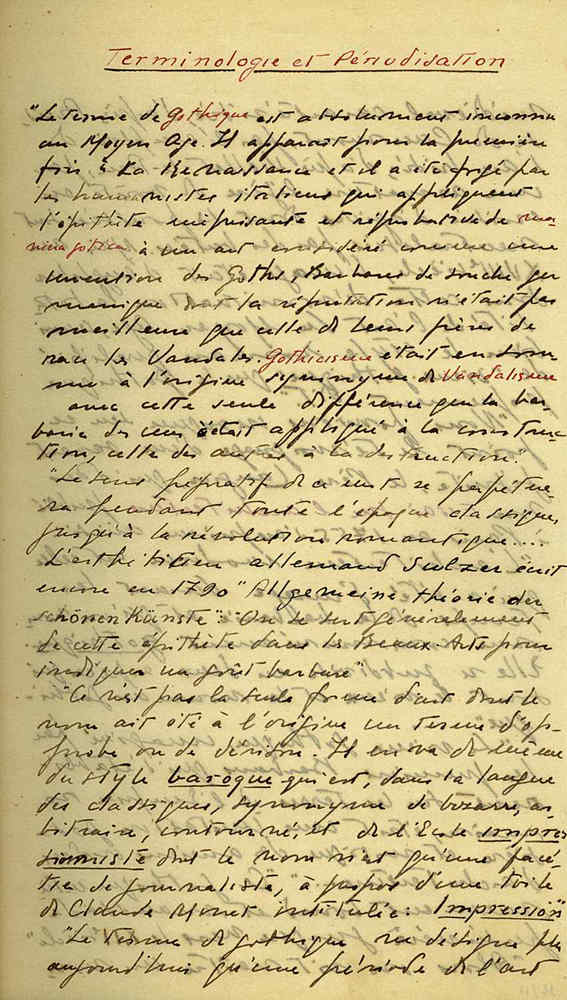 Terminologie et Périodisation
"Le terme de Gothique est absolument inconnu
au Moyen Age. Il apparaît pour la première
fois à la Renaissance et il a été forgé par
les humanistes italiens qui appliquent
l'épithète méprisante et réprobative de ma-
niera gotica à un art considéré comme une
invention des Goths, Barbares de souche ger
manique dont la réputation n'était pas
meilleure que celle de leurs frères de
race les Vandales. Gothicisme était en som
me à l'origine synonyme de Vandalisme
avec cette seule différence que la bar
barie des uns était appliqué à la construc-
tion, celle des autres à la destruction".
"Le sens péjoratif de ce mot se perpétue-
ra pendant toute l'époque classique,
jusqu'à la révolution romantique...
L'esthéticien allemand Sulzer écrit
encore en 1790 "Allgemeine théorie der
schönen Künste": "On se sert généralement
de cette épithète dans les Beaux-Arts pour
indiquer un goût barbare"
"Ce n'est pas la seule forme d'art dont le
nom ait été à l'origine un terme d'op-
probe ou de dérision. Il en va de même
du style baroque qui est, dans la langue
des classiques, synonyme de bizarre, ar
bitraire, contourné, et de l'Ecole impres
sionniste dont le nom n'est qu'une facé-
tie de journaliste, à propos d'une toile
de Claude Monet intitulée: Impression"
"Le Terme de gothique ne désigne plus
aujourd'hui qu'une période de l'art